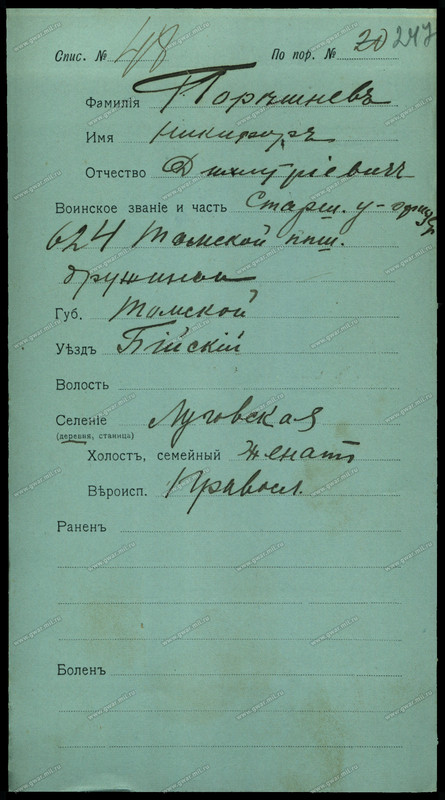 Спис. № 48 По пор. № 20 247
Фамилія Поршневъ
Имя Никифоръ
Отчество Дмитріевич
Воинское званіе и часть Старш. у-офицер
624 Томской пѣш.
дружины
Губ. Томской
Уѣздъ Бійскій
Волость
Селеніе Луговская
(деревня, станица)
Холостъ, семейный женатъ
Вѣроисп. Правосл.
Раненъ
Боленъ